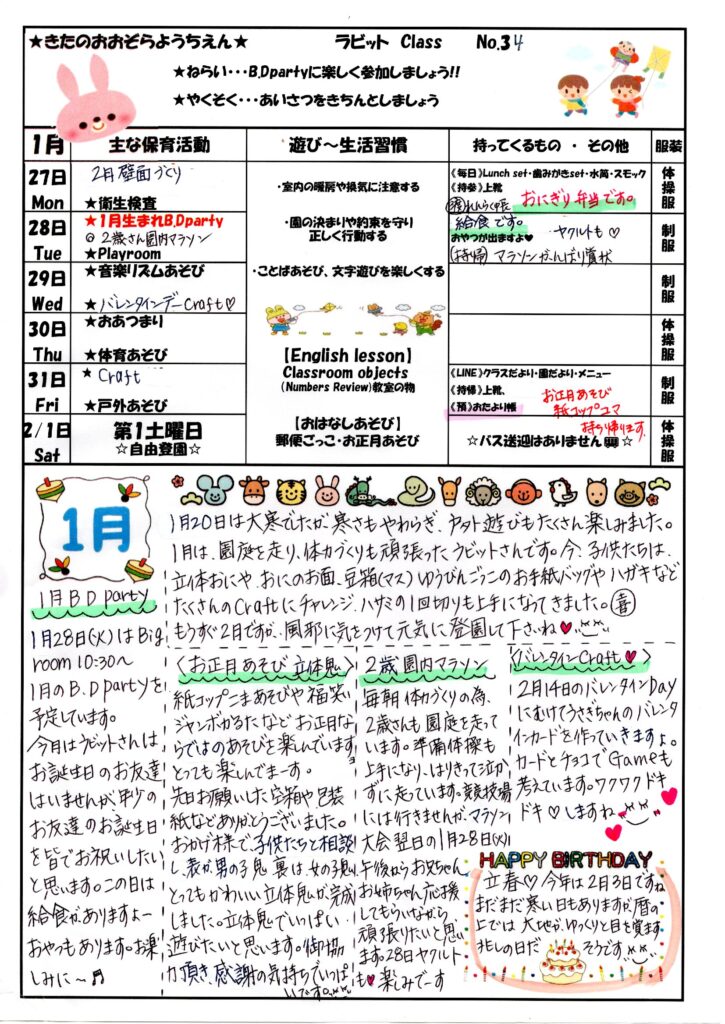 ★きたのおおぞらようちえん★ ラビット Class No.34
★ねらい･･･B,Dpartyに楽しく参加しましょう!!
★やくそく･･･あいさつをきちんとしましょう
1月 主な保育活動 遊び～生活習慣 持ってくるもの ・ その他 服装
27日 Mon
2月壁面づくり
★衛生検査
・室内の暖房や換気に注意する
《毎日》Lunch set・歯みがきset・水筒・スモック
《持参》上靴
おにぎり弁当です。
体操服
28日 Tue
★1月生まれB,Dparty
◎2歳さん園内マラソン
★Playroom
・園の決まりや約束を守り
正しく行動する
給食です。
おやつが出ますよ♥ ヤクルトも♡
(持帰) マラソンがんばり賞状
制服
29日 Wed
★音楽リズムあそび
★バレンタインデーCraft♡
・ことばあそび、文字遊びを楽しくする
制服
30日 Thu
★おあつまり
★体育あそび
【English lesson】
Classroom objects
(Numbers Review)教室の物
体操服
31日 Fri
★Craft
★戸外あそび
《LINE》クラスだより・園だより・メニュー
《持帰》上靴、
《預》おたより帳
お正月あそび
紙コップコマ
持ち帰ります。
制服
2/1日 Sat
第1土曜日
☆自由登園☆
【おはなしあそび】
郵便ごっこ・お正月あそび
☆バス送迎はありません☆
体操服
1月
1月20日は大寒でしたが寒さもやわらぎ、ヤット遊びもたくさん楽しみました。
1月は、園庭を走り、体力づくりも頑張ったラビットさんです。今、子供たちは、
立体おにや、おにのお面、豆箱(マス)ゆうびんごっこのお手紙バッグや ハガキなど
たくさんのCraftにチャレンジ、ハサミの1回切りも上手になってきました。㊗
もうすぐ2月ですが、風邪に気をつけて元気に登園して下さいね♥
1月 B.D party
1月28日(火)はBig
room 10:30～
1月のB.D partyを
予定しています。
今月はラビットさんは
お誕生日のお友達
はいませんが年少の
お友達のお誕生日
を皆でお祝いしたい
と思います。この日は
給食がありますよー
おやつもあります。お楽
しみに～♬
〈お正月あそび 立体鬼〉
紙コップこまあそびや福笑い
ジャンボかるたなど お正月な
らではのあそびを楽しんでいます
とっても楽しんでまーす。
先日お願いした空箱や包装
紙などありがとうございました。
おかげ様で子供たちと相談
し、表が男の子鬼 裏は女の子鬼
とってもかわいい立体鬼が完成
しました。立体鬼でいっぱい
遊びたいと思います。御協
力頂き、感謝の気持ちでいっぱ
いです。
2歳 園内マラソン
毎朝 体力づくりの為、
2歳さんも園庭を走って
います。準備体操も
上手になり、はりきって泣か
ずに走っています。競技場
には行きませんが、マラソン
大会翌日の1月28日(火)
午後からお兄ちゃん、
お姉ちゃん応援
してもらいながら
頑張りたいと思い
ます。28日ヤクルト
も♥楽しみでーす
〈バレンタインCraft♥〉
2月14日のバレンタインDay
にむけてうさぎちゃんのバレンタ
インカードを作っていきますよ。
カードとチョコでGameも
考えています。ワクワクドキ
ドキ♡しますね
HAPPY BIRTHDAY
立春♡ 今年は2月3日ですね
まだまだ寒い日もありますが、暦の
上では 大地がゆっくりと目を覚ます
兆しの日だ そうです